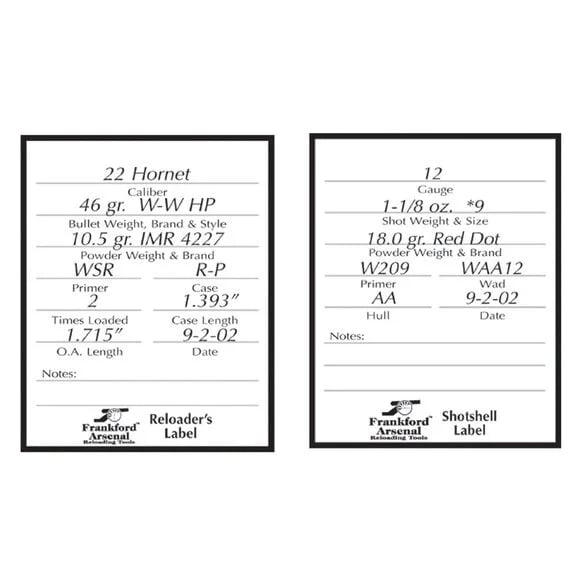 22 Hornet
Caliber
46 gr. W-W HP
Bullet Weight, Brand & Style
10.5 gr. IMR 4227
Powder Weight & Brand
WSR R-P
Primer Case
2 1.393”
Times Loaded Case Length
1.715” 9-2-02
O.A. Length Date
Notes:
Frankford™
Arsenal
Reloading Tools
Reloader's
Label
12
Gauge
1-1/8 oz. *9
Shot Weight & Size
18.0 gr. Red Dot
Powder Weight & Brand
W209 WAA12
Primer Wad
AA 9-2-02
Hull Date
Notes:
Frankford™
Arsenal
Reloading Tools
Shotshell
Label